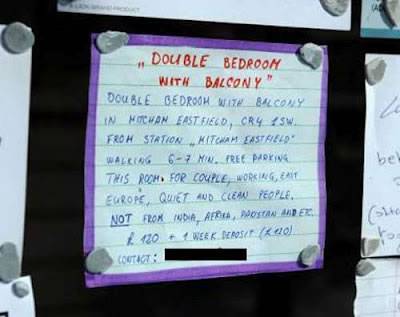 „DOUBLE BEDROOM
WITH BALCONY"
DOUBLE BEDROOM WITH BALCONY
IN MITCHAM EASTFIELD, CR4 1SW.
FROM STATION „MITCHAM EASTFIELD"
WALKING 6-7 MIN. FREE PARKING.
THIS ROOM FOR COUPLE, WORKING, EAST
EUROPE, QUIET AND CLEAN PEOPLE.
NOT FROM INDIA, AFRIKA, PAKISTAN AND ETC.
£ 120 + 1 WEEK DEPOSIT (£120)
CONTACT: